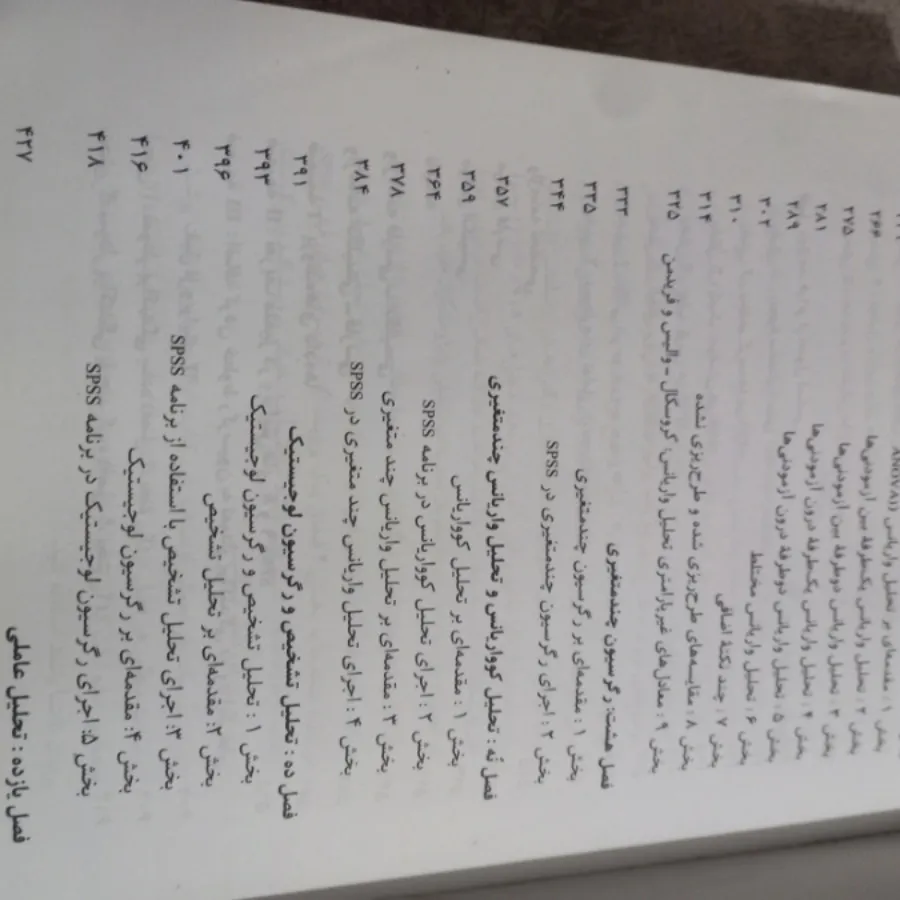 بخش ۱ : مقدمه‌ای بر تحلیل واریانس (ANOVA)
بخش ۲ : تحلیل واریانس یک‌طرفهٔ بین آزمودنی‌ها ۲۶۶
بخش ۳ : تحلیل واریانس دوطرفهٔ بین آزمودنی‌ها ۲۷۵
بخش ۴ : تحلیل واریانس یک‌طرفهٔ درون آزمودنی‌ها ۲۸۱
بخش ۵ : تحلیل واریانس دوطرفهٔ درون آزمودنی‌ها ۲۸۹
بخش ۶ : تحلیل واریانس مختلط ۳۰۲
بخش ۷ : چند نکتهٔ اضافی ۳۱۰
بخش ۸ : مقایسه‌های طرح‌ریزی شده و طرح‌ریزی نشده ۳۱۴
بخش ۹ : معادل‌های غیرپارامتری تحلیل واریانس: کروسکال - والیس و فریدمن ۳۲۵
فصل هشت: رگرسیون چندمتغیری ۳۳۳
بخش ۱ : مقدمه‌ای بر رگرسیون چندمتغیری ۳۳۵
بخش ۲ : اجرای رگرسیون چندمتغیری در SPSS ۳۴۴
فصل نُه: تحلیل کوواریانس و تحلیل واریانس چندمتغیری ۳۵۷
بخش ۱ : مقدمه‌ای بر تحلیل کوواریانس ۳۵۹
بخش ۲ : اجرای تحلیل کوواریانس در برنامه SPSS ۳۶۴
بخش ۳ : مقدمه‌ای بر تحلیل واریانس چند متغیری ۳۷۸
بخش ۴ : اجرای تحلیل واریانس چند متغیری در SPSS ۳۸۴
فصل ده : تحلیل تشخیص و رگرسیون لوجیستیک ۳۹۱
بخش ۱ : تحلیل تشخیص و رگرسیون لوجیستیک ۳۹۳
بخش ۲: مقدمه‌ای بر تحلیل تشخیص ۳۹۶
بخش ۳: اجرای تحلیل تشخیص با استفاده از برنامه SPSS ۴۰۱
بخش ۴: مقدمه‌ای بر رگرسیون لوجیستیک ۴۱۶
بخش ۵: اجرای رگرسیون لوجیستیک در برنامه SPSS ۴۱۸
فصل یازده : تحلیل عاملی ۴۲۷